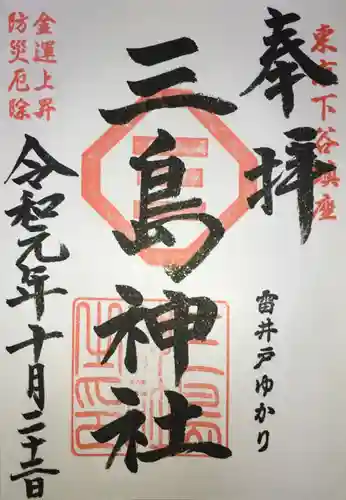 東京下谷鎮座
奉拝
雷井戸ゆかり
三島神社
金運上昇
防災厄除
令和元年十月二十二日